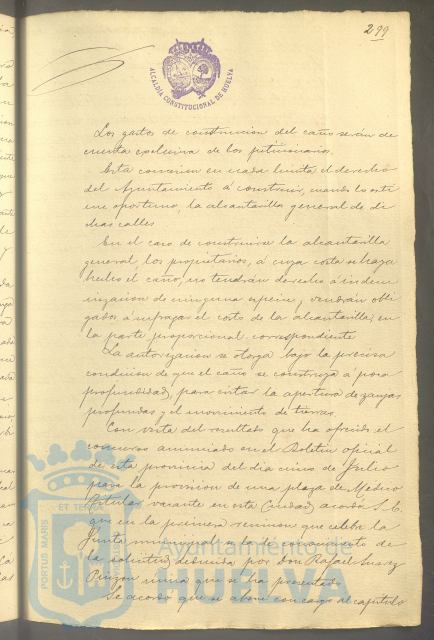 299
ALCALDÍA CONSTITUCIONAL DE HUELVA
Los gastos de construccion del caño serán de
cuenta exclusiva de los peticionarios.
Esta concesion en nada limita el derecho
del Ayuntamiento á construir, cuando lo esti
me oportuno, la alcantarilla general de di
chas calles.
En el caso de construirse la alcantarilla
general los propietarios, á cuya costa se haga
hecho el caño, no tendrán derecho á indem
nizacion de ninguna especie, y vendrán obli
gados á sufragar el costo de la alcantarilla, en
la parte proporcional correspondiente
La autorizacion se otorga bajo la precisa
condicion de que el caño se construya á poca
profundidad, para evitar la apertura de zanjas
profundas y el movimiento de tierras.
Con vista del resultado que ha ofrecido el
concurso anunciado en el Boletin oficial
de esta provincia del dia cinco de Julio
para la provision de una plaza de Médico
titular vacante en esta Ciudad, acordó S. E.
que en la primera reunion que celebre la
Junta municipal se la dé conocimiento de
la solicitud deducida por Don Rafael Suarez
Pinzon única que se ha presentado
Se acordó que se abone con cargo al capítulo
PORTUS MARIS ET TERRAE
Ayuntamiento de
HUELVA